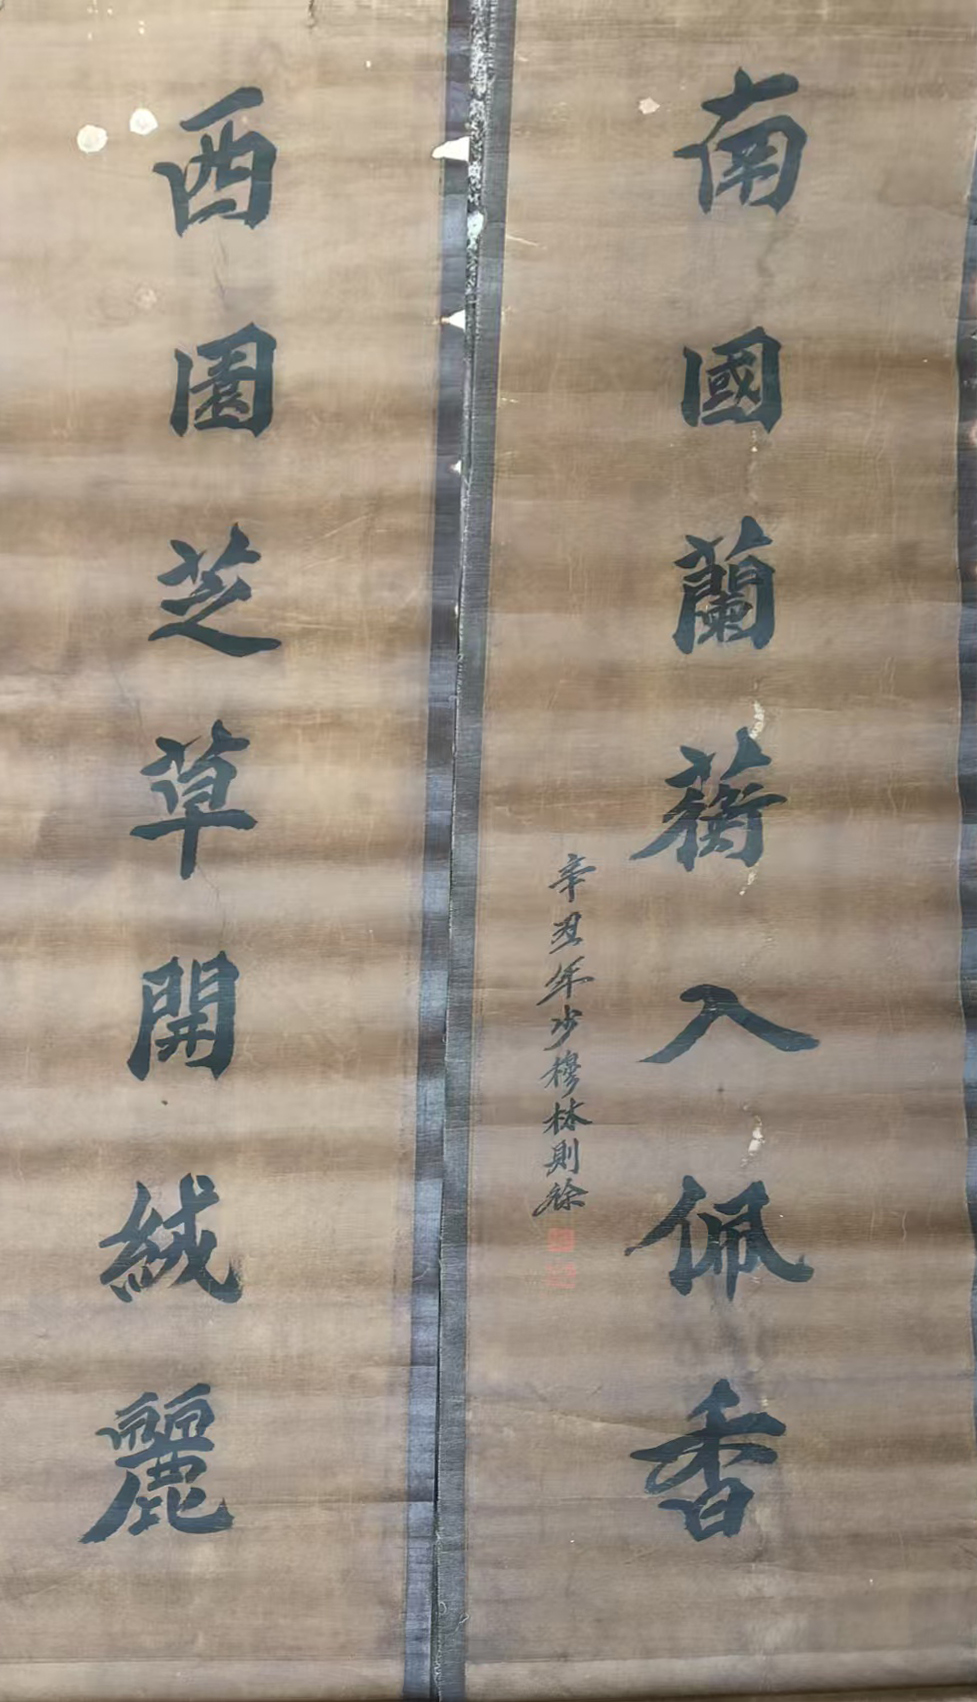 南國蘭蘅入佩香
辛丑年少穆林則徐
西園芝草開絨麗